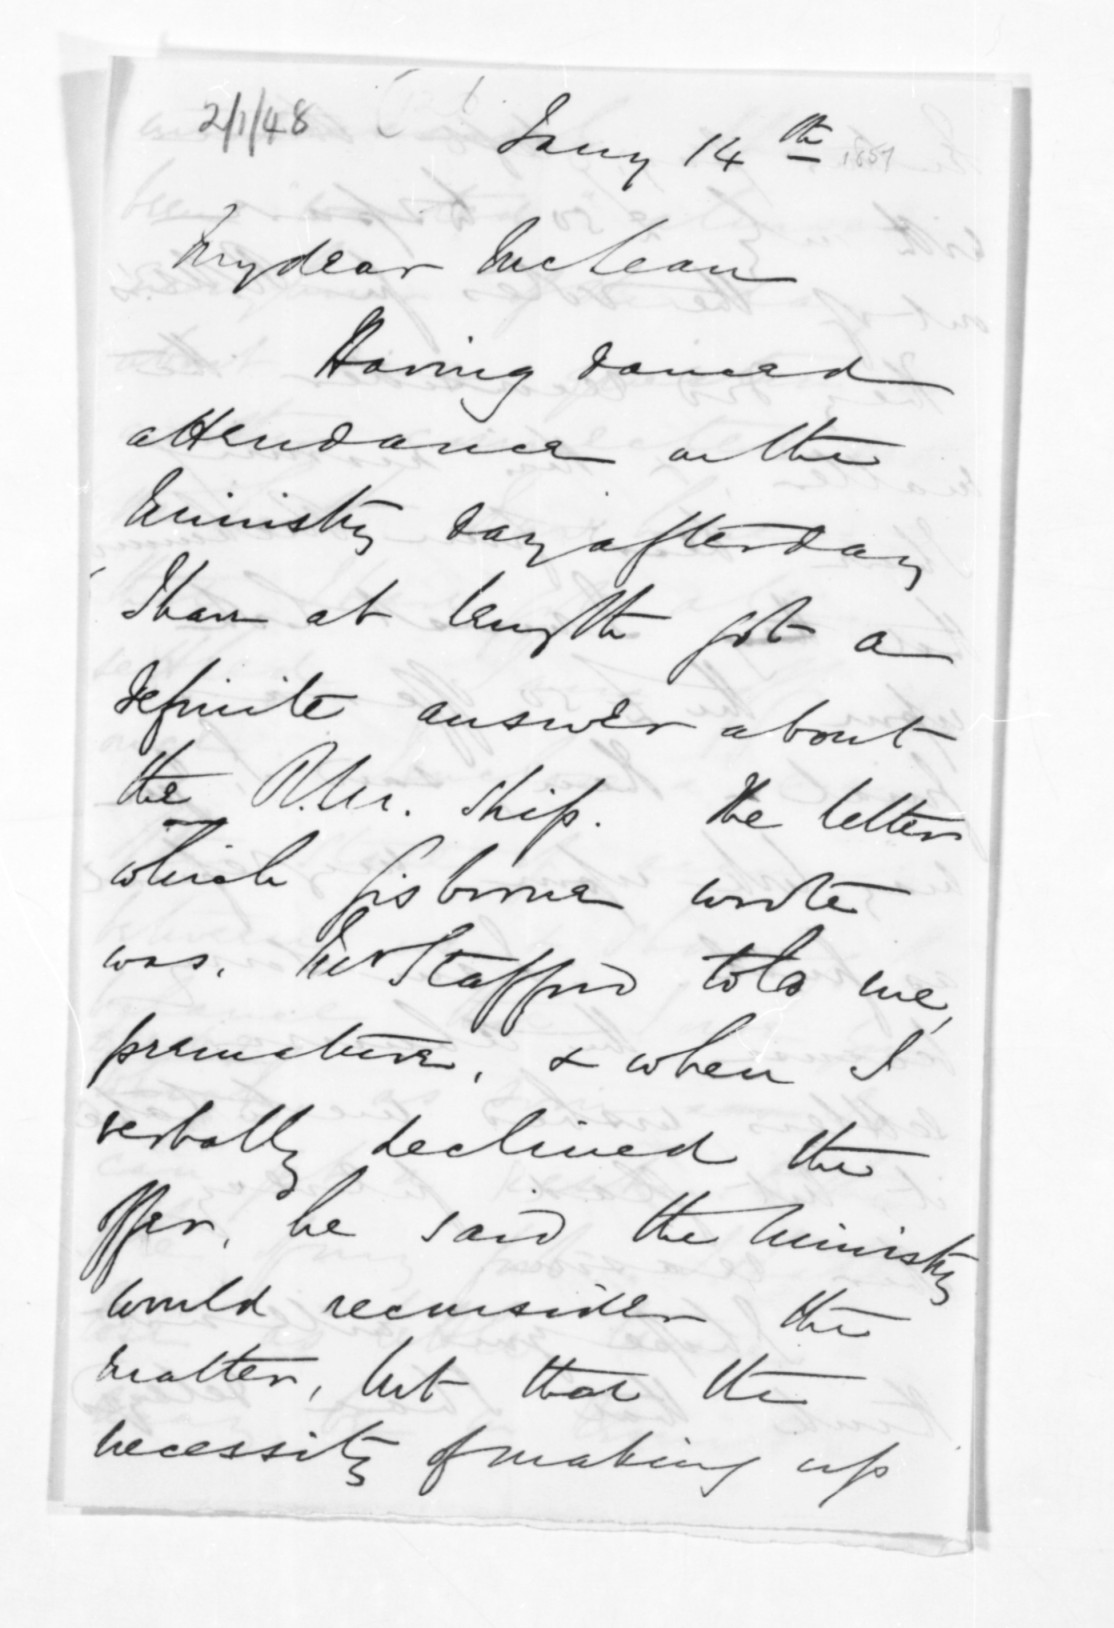 2/1/48
Jany 14th 1857
My dear McLean
Having danced
attendance on the
Ministry day after day
I have at length got a
definite answer about
the R.M. ship. The letter
which Gisborne wrote
was, Mr Stafford told me,
premature, & when I
verbally declined the
offer, he said the Ministry
would reconsider the
matter, but that the
necessity of making up